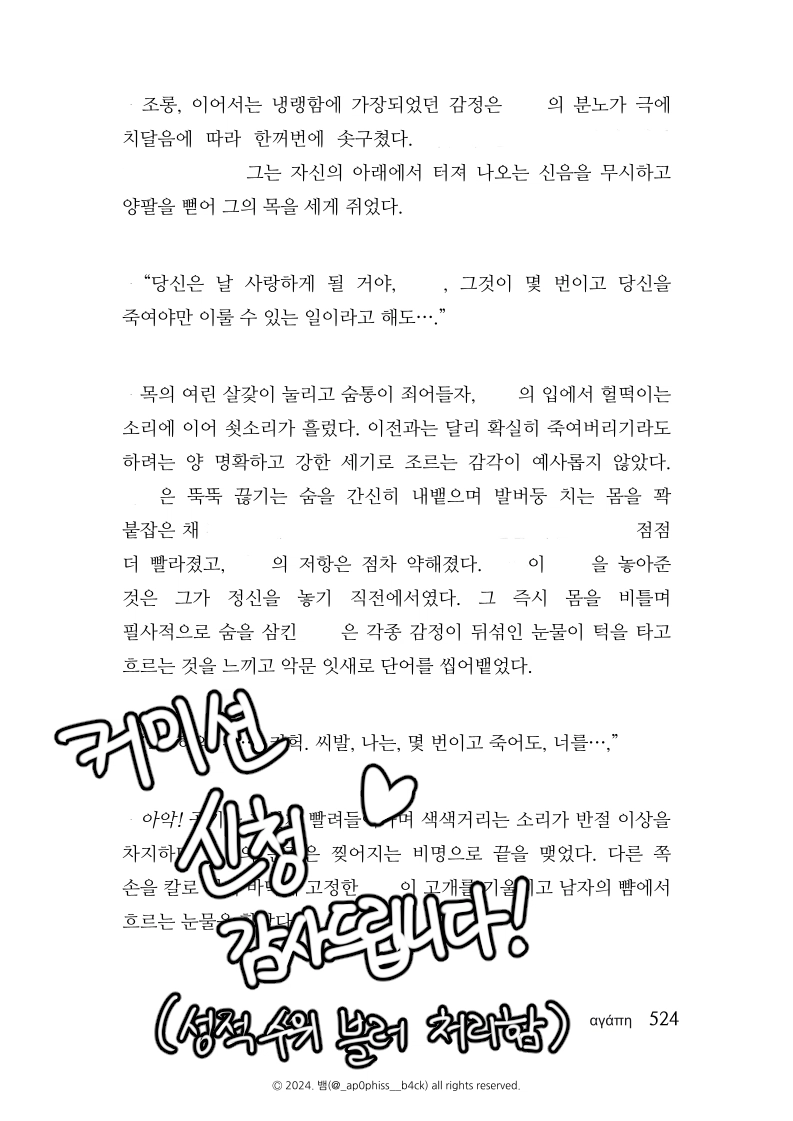 조롱, 이어서는 냉랭함에 가장되었던 감정은 의 분노가 극에
치달음에 따라 한꺼번에 솟구쳤다.
그는 자신의 아래에서 터져 나오는 신음을 무시하고
양팔을 뻗어 그의 목을 세게 쥐었다.
“당신은 날 사랑하게 될 거야, , 그것이 몇 번이고 당신을
죽여야만 이룰 수 있는 일이라고 해도….”
목의 여린 살갗이 눌리고 숨통이 죄어들자, 의 입에서 헐떡이는
소리에 이어 쇳소리가 흘렀다. 이전과는 달리 확실히 죽여버리기라도
하려는 양 명확하고 강한 세기로 조르는 감각이 예사롭지 않았다.
은 뚝뚝 끊기는 숨을 간신히 내뱉으며 발버둥 치는 몸을 꽉
붙잡은 채 점점
더 빨라졌고, 의 저항은 점차 약해졌다. 이 을 놓아준
것은 그가 정신을 놓기 직전에서였다. 그 즉시 몸을 비틀며
필사적으로 숨을 삼킨 은 각종 감정이 뒤섞인 눈물이 턱을 타고
흐르는 것을 느끼고 악문 잇새로 단어를 씹어뱉었다.
커미션
씨발, 나는, 몇 번이고 죽어도, 너를…,”
아악! 빨려들 며 색색거리는 소리가 반절 이상을
신청
차지하 은 찢어지는 비명으로 끝을 맺었다. 다른 쪽
손을 칼로 바닥 고정한 이 고개를 기울 고 남자의 뺨에서
흐르는 눈물을
감사드립니다!
(성적 수위 블러 처리함)
αγάπη 524
© 2024. 뱀(@_ap0phiss__b4ck) all rights reserved.